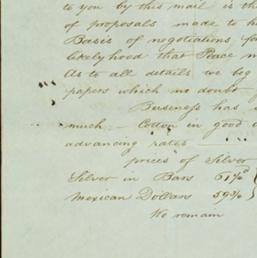 to you by this mail is the
of proposals made to h
Basis of negotiations, fo
likelyhood that Peace m
As to all details we beg
papers which no doubt
Buseness has
much :- Cotton in good d
advancing rates
prices of Silver
Silver in Bars 61⅞
Mexican Dollars 59¾
We remain